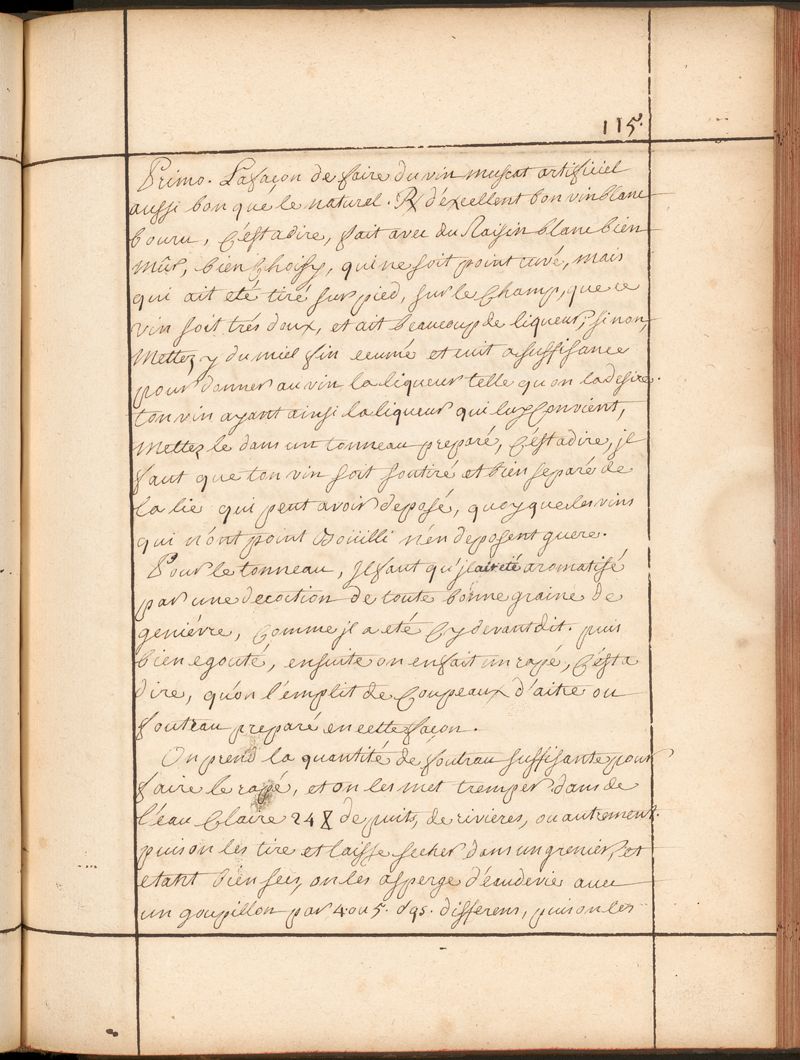 115.
Primo. La façon de faire du vin muscat artificiel
aussi bon que le naturel. Rx d'éxcellent bon vin blanc
bouru, C'est a dire, fait avec du Raisin blanc bien
mûr, bien Choisy, qui ne soit point cuvé, mais
qui ait eté tiré sur pied, sur le Champ, que ce
vin soit trés doux, et ait beaucoup de liqueur, sinon,
Mettez y du miel fin ecumé et cuit a suffisance
pour donner au vin la liqueur telle qu'on la desire.
ton vin ayant ainsi la liqueur qui luy Convient,
Mettez le dans un tonneau preparé, C'est a dire, jl
faut que ton vin soit soutiré et bien separé de
la lie qui peut avoir deposé, quoyque les vins
qui n'ont point Boüilli n'en deposent guere.
Pour le tonneau, Jl faut qu'jl ait eté aromatisé
par une decoction de toute bonne graine de
geniévre, Comme jl a eté Cy devant dit. puis
bien egouté, ensuite on en fait un rapé, C'est a
dire, qu'on l'emplit de Coupeaux d'aitre ou
fouteau preparé en cette façon.
On prend la quantité de fouteau suffisante pour
faire le rapé, et on les met tremper dans de
l'eau Claire 24 de puits, de rivieres, ou autrement.
puis on les tire et laisse secher dans un grenier, et
etant bien secs, on les asperge d'eau de vie avec
un goupillon par 4. ou 5. differens, puis on les